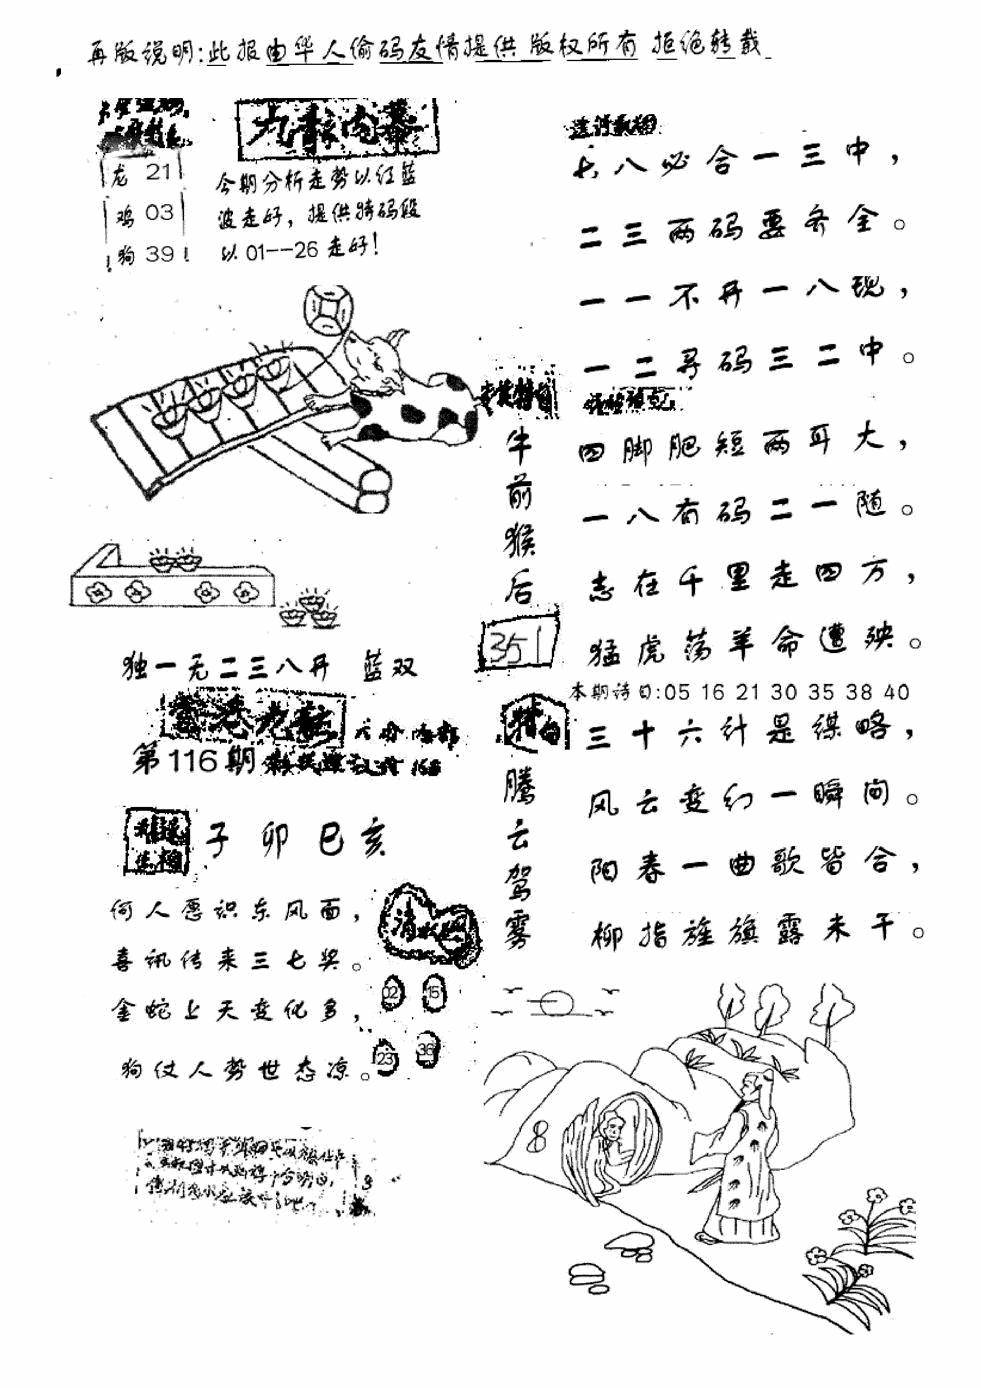 再版说明:此报由华人偷码友情提供 版权所有 拒绝转载
九龍内幕
龙 21
鸡 03
狗 39
今期分析走势以红蓝
波走好，提供特码段
以01--26走好！
七八必合一三中，
二三两码要齐全。
一一不开一八现，
一二寻码三二中。
牛前猴后
351
四脚肥短两耳大，
一八有码二一随。
志在千里走四方，
猛虎荡羊命遭殃。
本期诗曰:05 16 21 30 35 38 40
独一无二三八开 蓝双
香港九龍
第116期
子卯巳亥
何人愿识东风面，
喜讯传来三七奖。
金蛇上天变化多，
狗仗人势世态凉。
02 15
23 36
腾云驾雾
三十六计是谋略，
风云变幻一瞬间。
阳春一曲歌皆合，
柳指旌旗露未干。
8